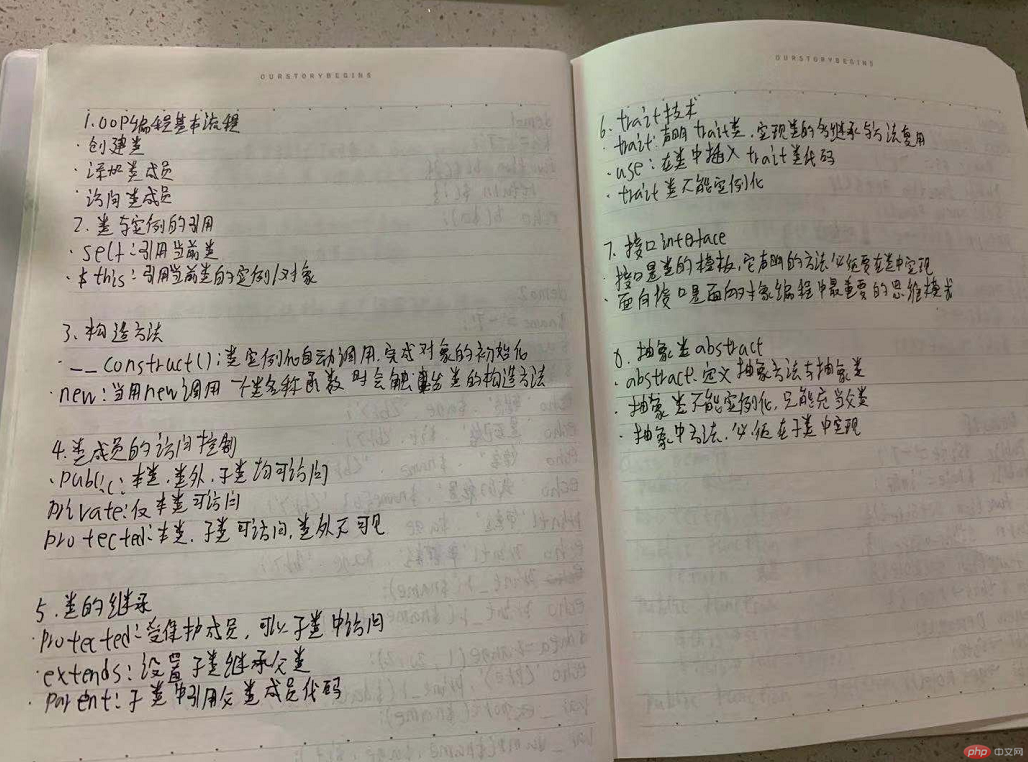 OURSTORYBEGINS
1.OOP编程基本流程
·创建类
·添加类成员
·访问类成员
2.类与实例的引用
·self:引用当前类
·$this:引用当前类的实例/对象
3.构造方法
·__construct():类实例化自动调用,完成对象的初始化
·new:当用new调用一个类名称函数时会触发类的构造方法
4.类成员的访问控制
·public:本类,类外,子类均可访问
private:仅本类可访问
protected:本类,子类可访问,类外不可见
5.类的继承
·protected:受保护成员,可以子类中访问
·extends:设置子类继承父类
·parent:子类中引用父类成员代码
OURSTORYBEGINS
6.trait技术
·trait:声明trait类,实现类的多继承与方法复用
·use:在类中插入trait类代码
·trait类不能实例化
7.接口interface
·接口是类的模板,它声明的方法必须要在类中实现
·面向接口是面向对象编程中最重要的思维模式
8.抽象类abstract
·abstract:定义抽象方法与抽象类
·抽象类不能实例化,只能充当父类
·抽象中方法,必须在子类中实现
php 中文网